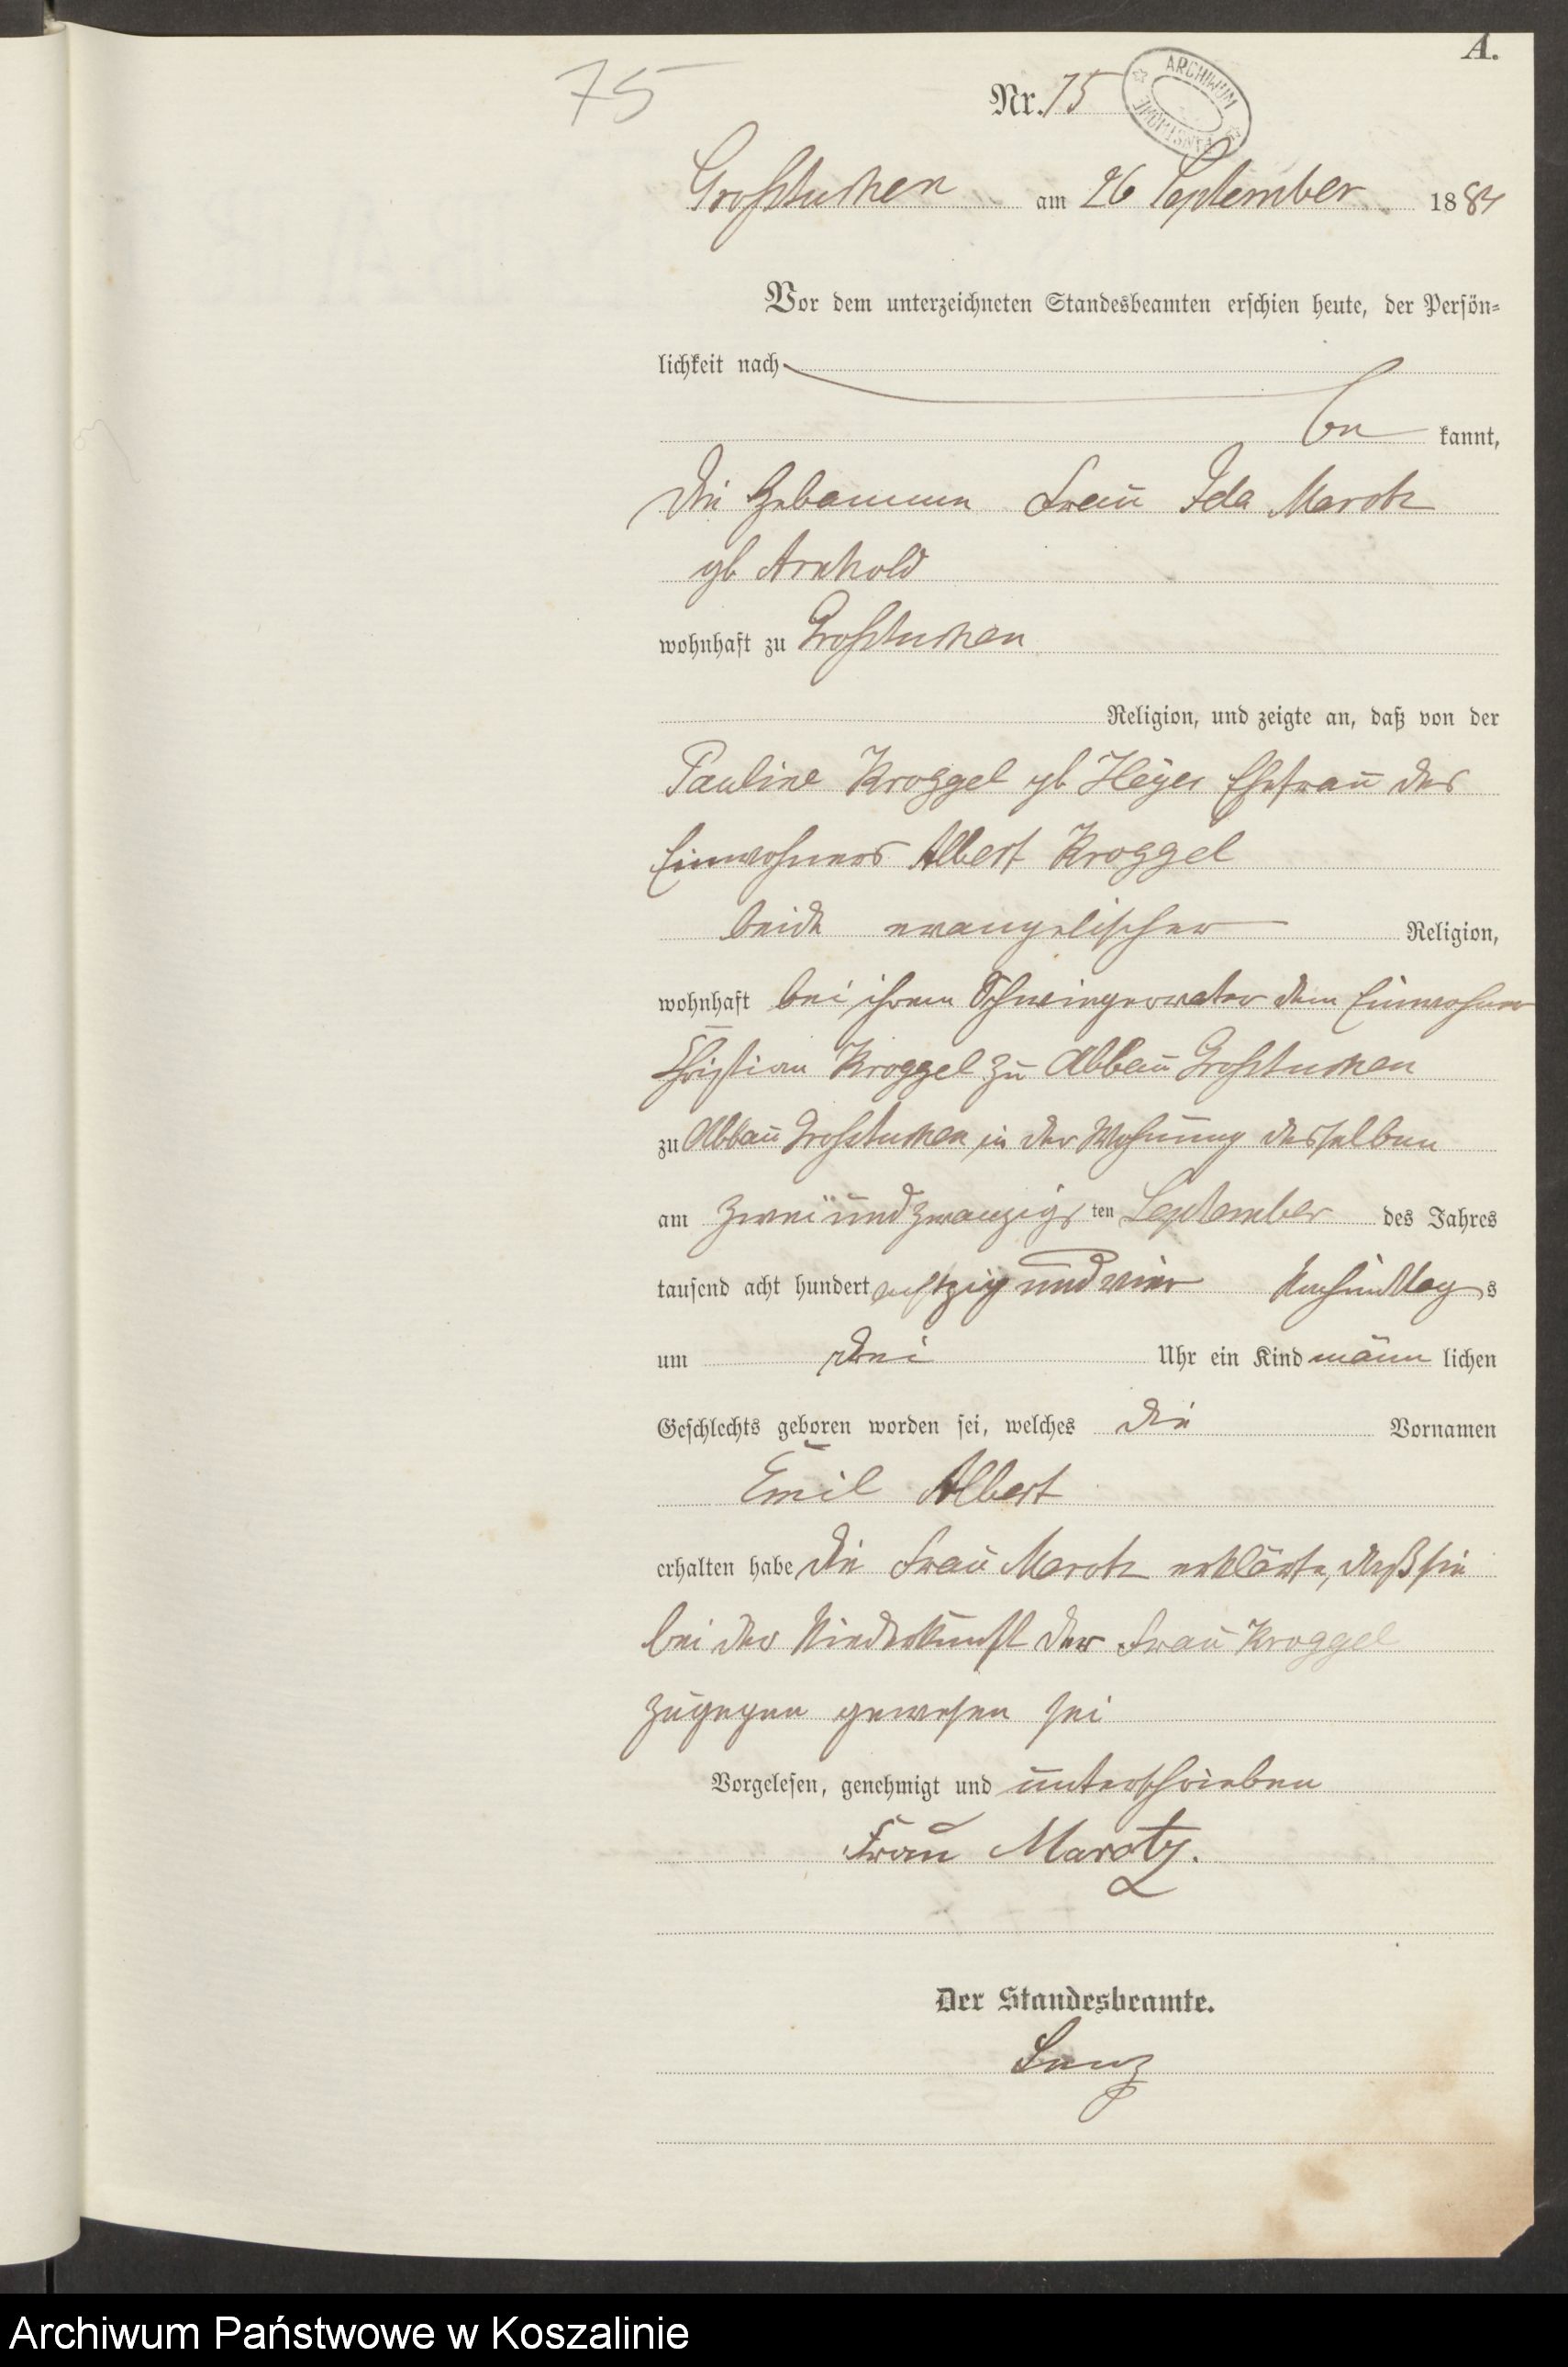 A.
75
Nr. 75
ARCHIWUM
Großtuchen am 26 September 1884
Vor dem unterzeichneten Standesbeamten erschien heute, der Persön=
lichkeit nach
be kannt,
die Hebamme Frau Ida Marotz
gb Arnhold
wohnhaft zu Großtuchen
Religion, und zeigte an, daß von der
Pauline Kroggel gb Heyer Ehefrau des
Einwohners Albert Kroggel
beide evangelischer Religion,
wohnhaft bei ihrem Schwiegervater dem Einwohner
Christian Kroggel zu Abbau Großtuchen
zu Abbau Großtuchen in der Wohnung desselben
am zwei und zwanzigs ten September des Jahres
tausend acht hundert achtzig und vier Nachmittag s
um drei Uhr ein Kind männ lichen
Geschlechts geboren worden sei, welches die Vornamen
Emil Albert
erhalten habe die Frau Marotz erklärte, daß sie
bei der Niederkunft der Frau Kroggel
zugegen gewesen sei
Vorgelesen, genehmigt und unterschrieben
Frau Marotz.
Der Standesbeamte.
Archiwum Państwowe w Koszalinie